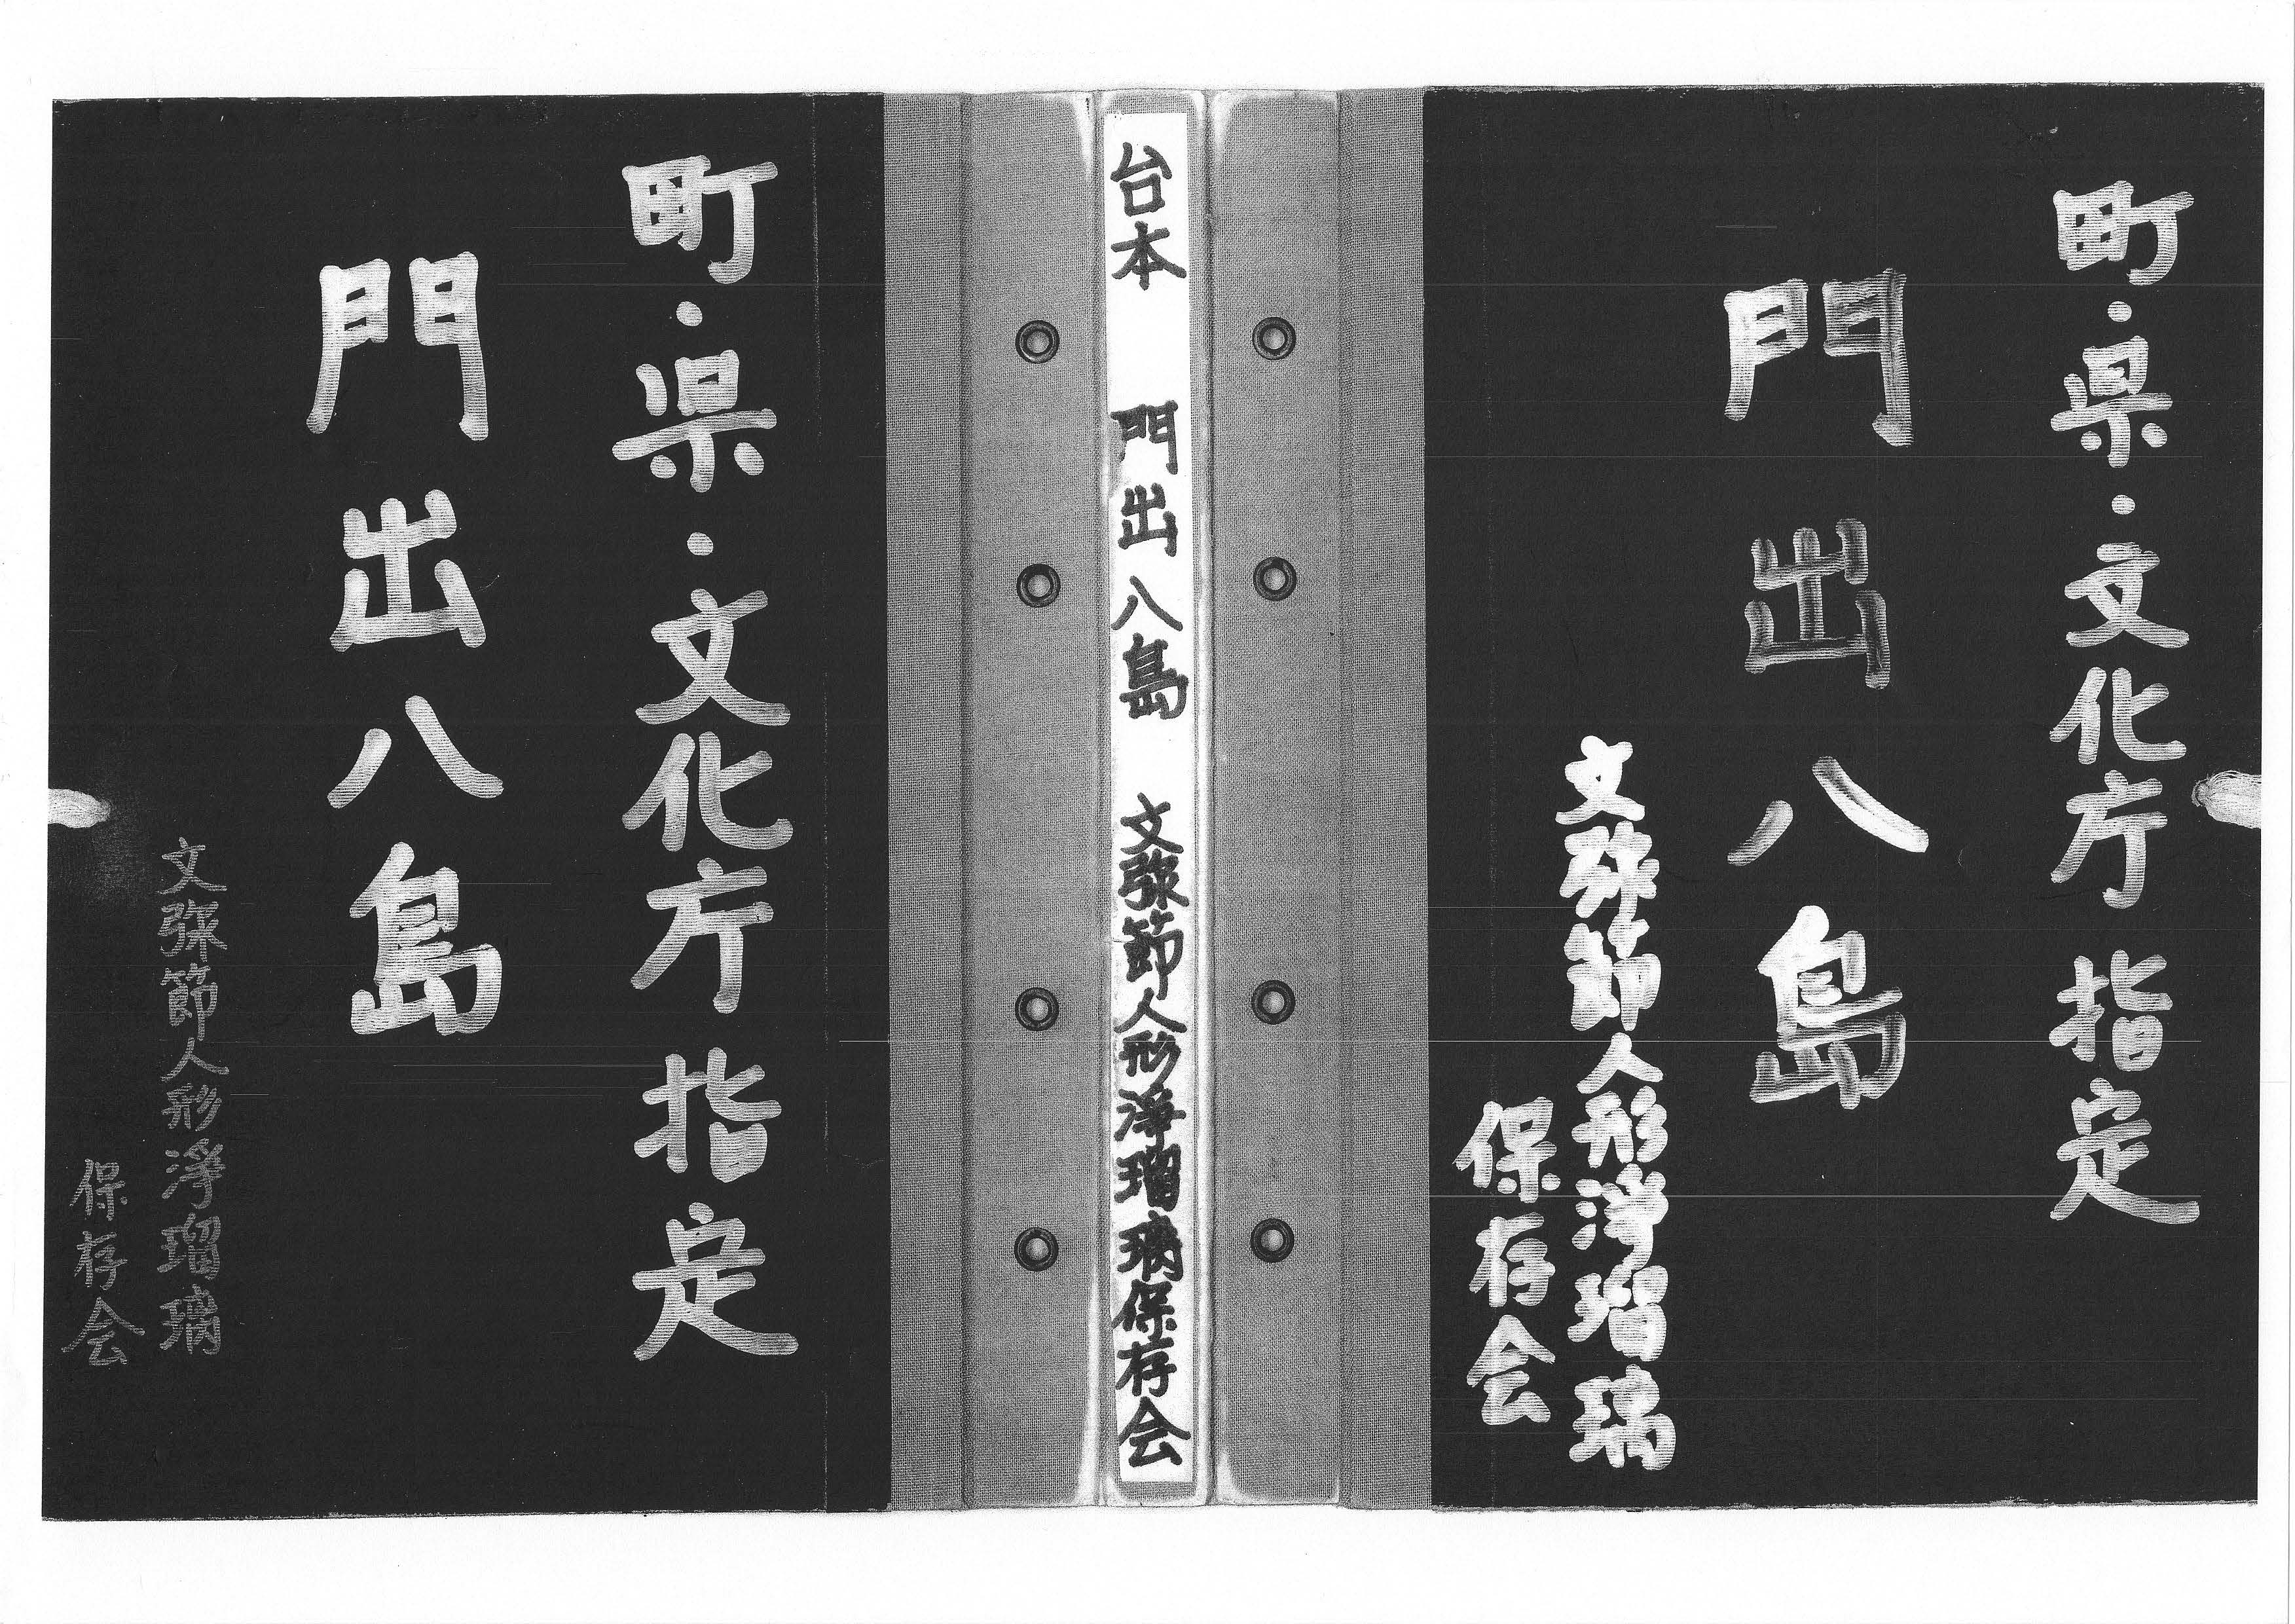 町・県・文化庁 指定
門出八島
文弥節人形浄瑠璃
保存会
台本 門出八島 文弥節人形浄瑠璃保存会
町・県・文化庁 指定
門出八島
文弥節人形浄瑠璃
保存会